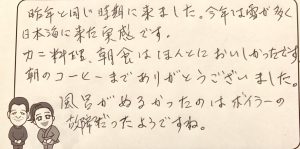 昨年と同じ時期に来ました。今年は雪が多く
日本海に来た実感です。
カニ料理、朝食はほんとにおいしかったです
朝のコーヒーまでありがとうございました。
風呂がぬるかったのはボイラーの
故障だったようですね。